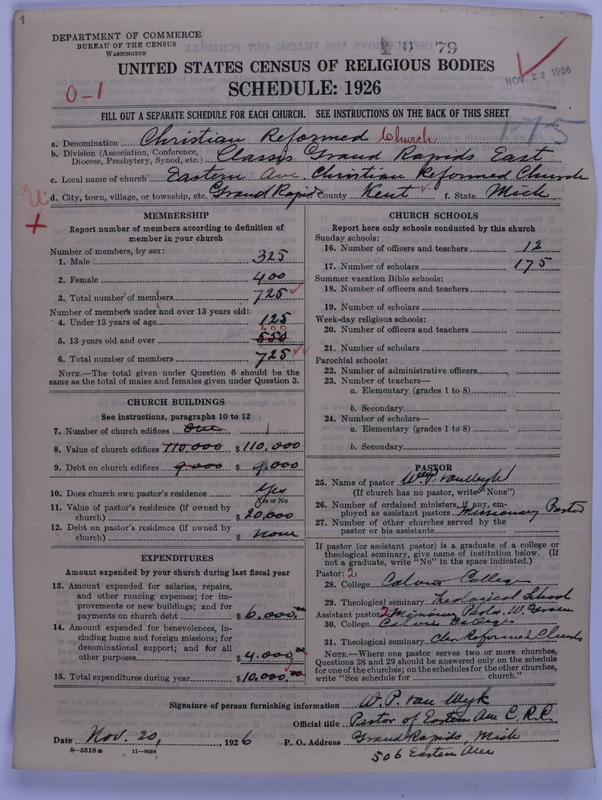 DEPARTMENT OF COMMERCE
BUREAU OF THE CENSUS
WASHINGTON
79
NOV 22 1926
UNITED STATES CENSUS OF RELIGIOUS BODIES
SCHEDULE: 1926
0-1
FILL OUT A SEPARATE SCHEDULE FOR EACH CHURCH. SEE INSTRUCTIONS ON THE BACK OF THIS SHEET
175
a. Denomination Christian Reformed Church
b. Division (Association, Conference, Diocese, Presbytery, Synod, etc.) Classis Grand Rapids East
c. Local name of church Eastern Ave. Christian Reformed Church
d. City, town, village, or township, etc. Grand Rapids County Kent f. State Mich.
MEMBERSHIP
Report number of members according to definition of
member in your church
Number of members, by sex:
1. Male 325
2. Female 400
3. Total number of members 725
Number of members under and over 13 years old:
4. Under 13 years of age 125
600
5. 13 years old and over 550
6. Total number of members 725
NOTE.—The total given under Question 6 should be
same as the total of males and females given under Question 3.
CHURCH BUILDINGS
See instructions, paragraphs 10 to 12
7. Number of church edifices One 1
8. Value of church edifices 110,000 $ 110,000
9. Debt on church edifices 9,000 $ 9,000
10. Does church own pastor's residence Yes
Yes or No
11. Value of pastor's residence (if owned by
church) $ 20,000
12. Debt on pastor's residence (if owned by
church) $ none
EXPENDITURES
Amount expended by your church during last fiscal year
13. Amount expended for salaries, repairs,
and other running expenses; for im-
provements or new buildings; and for
payments on church debt $ 6,000.00
14. Amount expended for benevolences, in-
cluding home and foreign missions; for
denominational support; and for all
other purposes $ 4,000.00
15. Total expenditures during year $ 10,000.00
CHURCH SCHOOLS
Report here only schools conducted by this church
Sunday schools:
16. Number of officers and teachers 12
17. Number of scholars 175
Summer vacation Bible schools:
18. Number of officers and teachers
19. Number of scholars
Week-day religious schools:
20. Number of officers and teachers
21. Number of scholars
Parochial schools:
22. Number of administrative officers
23. Number of teachers—
a. Elementary (grades 1 to 8)
b. Secondary
24. Number of scholars—
a. Elementary (grades 1 to 8)
b. Secondary
PASTOR
25. Name of pastor W. P. Van Wyk
(If church has no pastor, write "None")
26. Number of ordained ministers, if any, em-
ployed as assistant pastors Missionary Pastor
27. Number of other churches served by the
pastor or his assistants
If pastor (or assistant pastor) is a graduate of a college or
theological seminary, give name of institution below. (If
not a graduate, write "No" in the space indicated.)
Pastor: 2
28. College Calvin College
29. Theological seminary Theological School
Assistant pastor: 2
30. College Calvin College
31. Theological seminary Chr Reformed Church
NOTE.—Where one pastor serves two or more churches,
Questions 28 and 29 should be answered only on the schedule
for one of the churches; on the schedules for the other churches,
write "See schedule for church."
Signature of person furnishing information W. P. Van Wyk
Official title Pastor of Eastern Ave C.R.C.
Date Nov. 20, 1926 P. O. Address Grand Rapids, Mich
506 Eastern Ave
8—5518a 11—9054